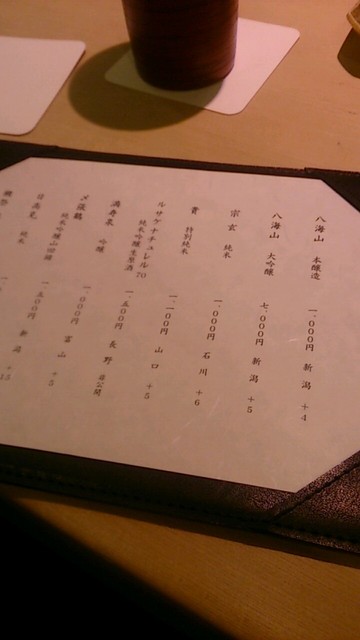 八海山 本醸造 一、〇〇〇円 新潟 +4
八海山 大吟醸 七、〇〇〇円 新潟 +5
宗玄 純米 一、〇〇〇円 石川 +6
貴 特別純米 一、一〇〇円 山口 +5
ルサケナチュレル70
純米吟醸生原酒 一、五〇〇円 長野 非公開
満寿泉 吟醸 一、〇〇〇円 富山 +5
〆張鶴 純米吟醸山田錦 一、五〇〇円 新潟
日高見 純米